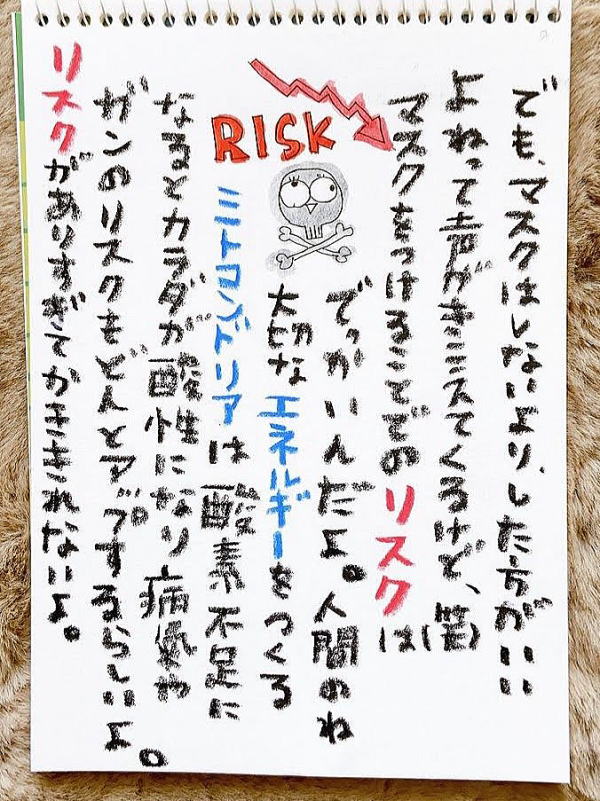 でも、マスクはしないより、した方がいい
よねって声がきこえてくるけど、(笑)
マスクをつけることでの リスク は
でっかいんだよ。人間のね
大切な エネルギー をつくる
RISK
ミトコンドリア は 酸素不足に
なるとカラダが 酸性になり 病気や
ガンのリスクもどんとアップするらしいよ。
リスク がありすぎてかききれないよ。